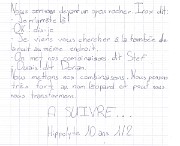 Nous sommes depart un peu cacher. Inox dit:
- Je m'arrete là!
- Ok! dis-je
- Je viens vous chercher à la tombée de
la nuit au même endroit.
- On met nos combinaisons dit Stef
- Ouais! dit Dorian.
Nous mettons nos combinaisons. Nous pensons
très fort au léopard et pouf nous
nous transformons.
A SUIVRE...
Hippolyte 10 ans 1/2